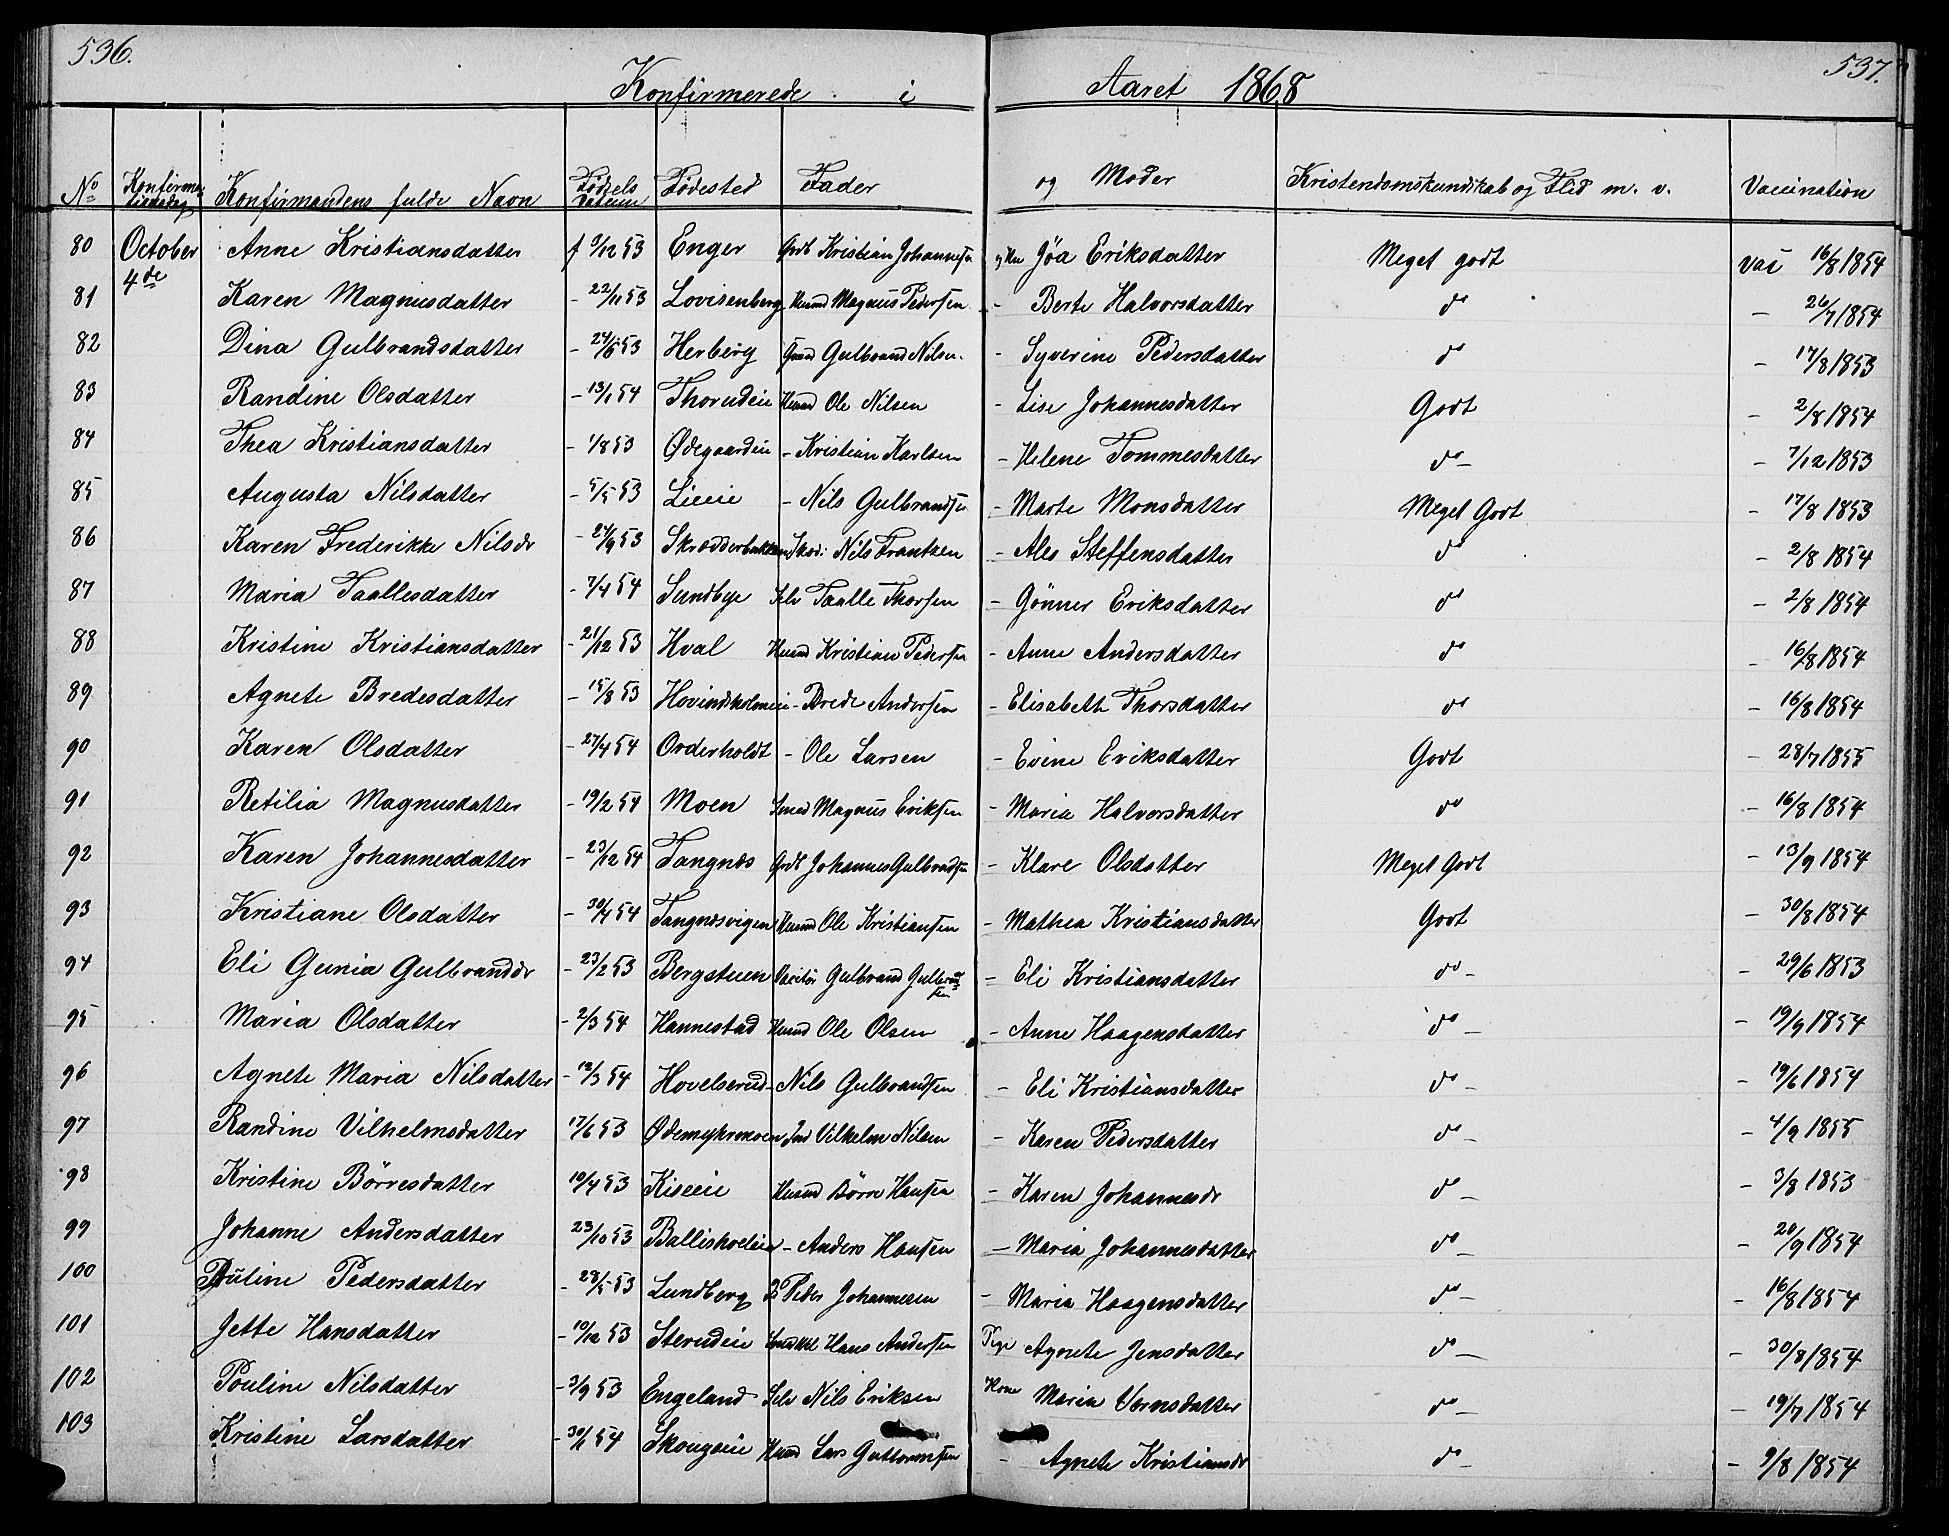 536. 537.
Konfirmerede i Aaret 1868
No Konfirmationsdag Konfirmandens fulde Navn Fødselsdatum Fødested Fader og Moder Kristendomskundskab og Flid m. v. Vaccination
80 October 4de Anne Kristiansdatter f 9/12 53 Enger Grdb Kristian Johannesen og Kne Jøa Eriksdatter Meget godt vac 16/8 1854
81 Karen Magnusdatter - 22/11 53 Lovisenberg Husmd Magnus Pedersen - Berte Halvorsdatter do - 26/7 1854
82 Dina Gulbrandsdatter - 24/6 53 Herberg Gulbrand Nilsen - Syverine Pedersdatter do - 17/8 1853
83 Randine Olsdatter - 13/1 54 Thorudeie Husmd Ole Nilsen - Lise Johannesdatter Godt - 2/8 1854
84 Thea Kristiansdatter - 1/8 53 Ødegaardeie - Kristian Karlsen - Helene Tommesdatter do - 7/12 1853
85 Augusta Nilsdatter - 5/5 53 Lieeie - Nils Gulbrandsen - Marte Monsdatter Meget Godt - 17/8 1853
86 Karen Frederikke Nilsdr - 24/9 53 Skrædderbakken Nils Frantzen - Ales Steffensdatter do - 2/8 1854
87 Maria Taallesdatter - 7/4 54 Sundbye Selv Taalle Thorsen - Gönner Eriksdatter do - 2/8 1854
88 Kristine Kristiansdatter - 21/12 53 Hval Husmd Kristian Pedersen - Anne Andersdatter do - 16/8 1854
89 Agnete Bredesdatter - 15/8 53 Hovindsholmeie - Brede Andersen - Elisabeth Thorsdatter do - 16/8 1854
90 Karen Olsdatter - 27/4 54 Orderholdt - Ole Larsen - Evine Eriksdatter Godt - 28/7 1855
91 Retilia Magnusdatter - 19/2 54 Moen Smed Magnus Eriksen - Maria Halvorsdatter do - 16/8 1854
92 Karen Johannesdatter - 23/12 54 Tangnes Grdb Johannes Gulbrandsen - Klare Olsdatter Meget Godt - 13/9 1854
93 Kristiane Olsdatter - 30/4 54 Tangnesvigen Husmd Ole Kristiansen - Mathea Kristiansdatter Godt - 30/8 1854
94 Eli Gunia Gulbrandsdr - 23/2 53 Bergstuen Gulbrand Gulbrandsen - Eli Kristiansdatter do - - 29/6 1853
95 Maria Olsdatter - 2/3 54 Hannestad Husmd Ole Olsen - Anne Haagensdatter do - - 19/9 1854
96 Agnete Maria Nilsdatter - 12/3 54 Hovelserud - Nils Gulbrandsen - Eli Kristiansdatter do - - 19/6 1854
97 Randine Vilhelmsdatter 17/6 53 Ødemykremoen Ind Vilhelm Nilsen - Karen Pedersdatter do - - 4/9 1855
98 Kristine Börresdatter 10/4 53 Kiseeie Husmd Börre Hansen - Karen Johannesdr do - - 3/8 1853
99 Johanne Andersdatter 23/10 53 Ballisholeie - Anders Hansen - Maria Johannesdatter do - - 20/9 1854
100 Pauline Pedersdatter - 28/5 53 Lundberg Do Peder Johannesen - Maria Haagensdatter do - - 16/8 1854
101 Jette Hansdatter - 10/12 53 Sterudeie Hans Andersen Pige Agnete Jensdatter do - - 30/8 1854
102 Pouline Nilsdatter - 3/9 53 Engeland Selv Nils Eriksen Kone Maria Vernsdatter do - - 19/7 1854
103 Kristine Larsdatter - 30/1 54 Skougeie Husmd Lars Guttormsen - Agnete Kristiansdr do - - 9/8 1854